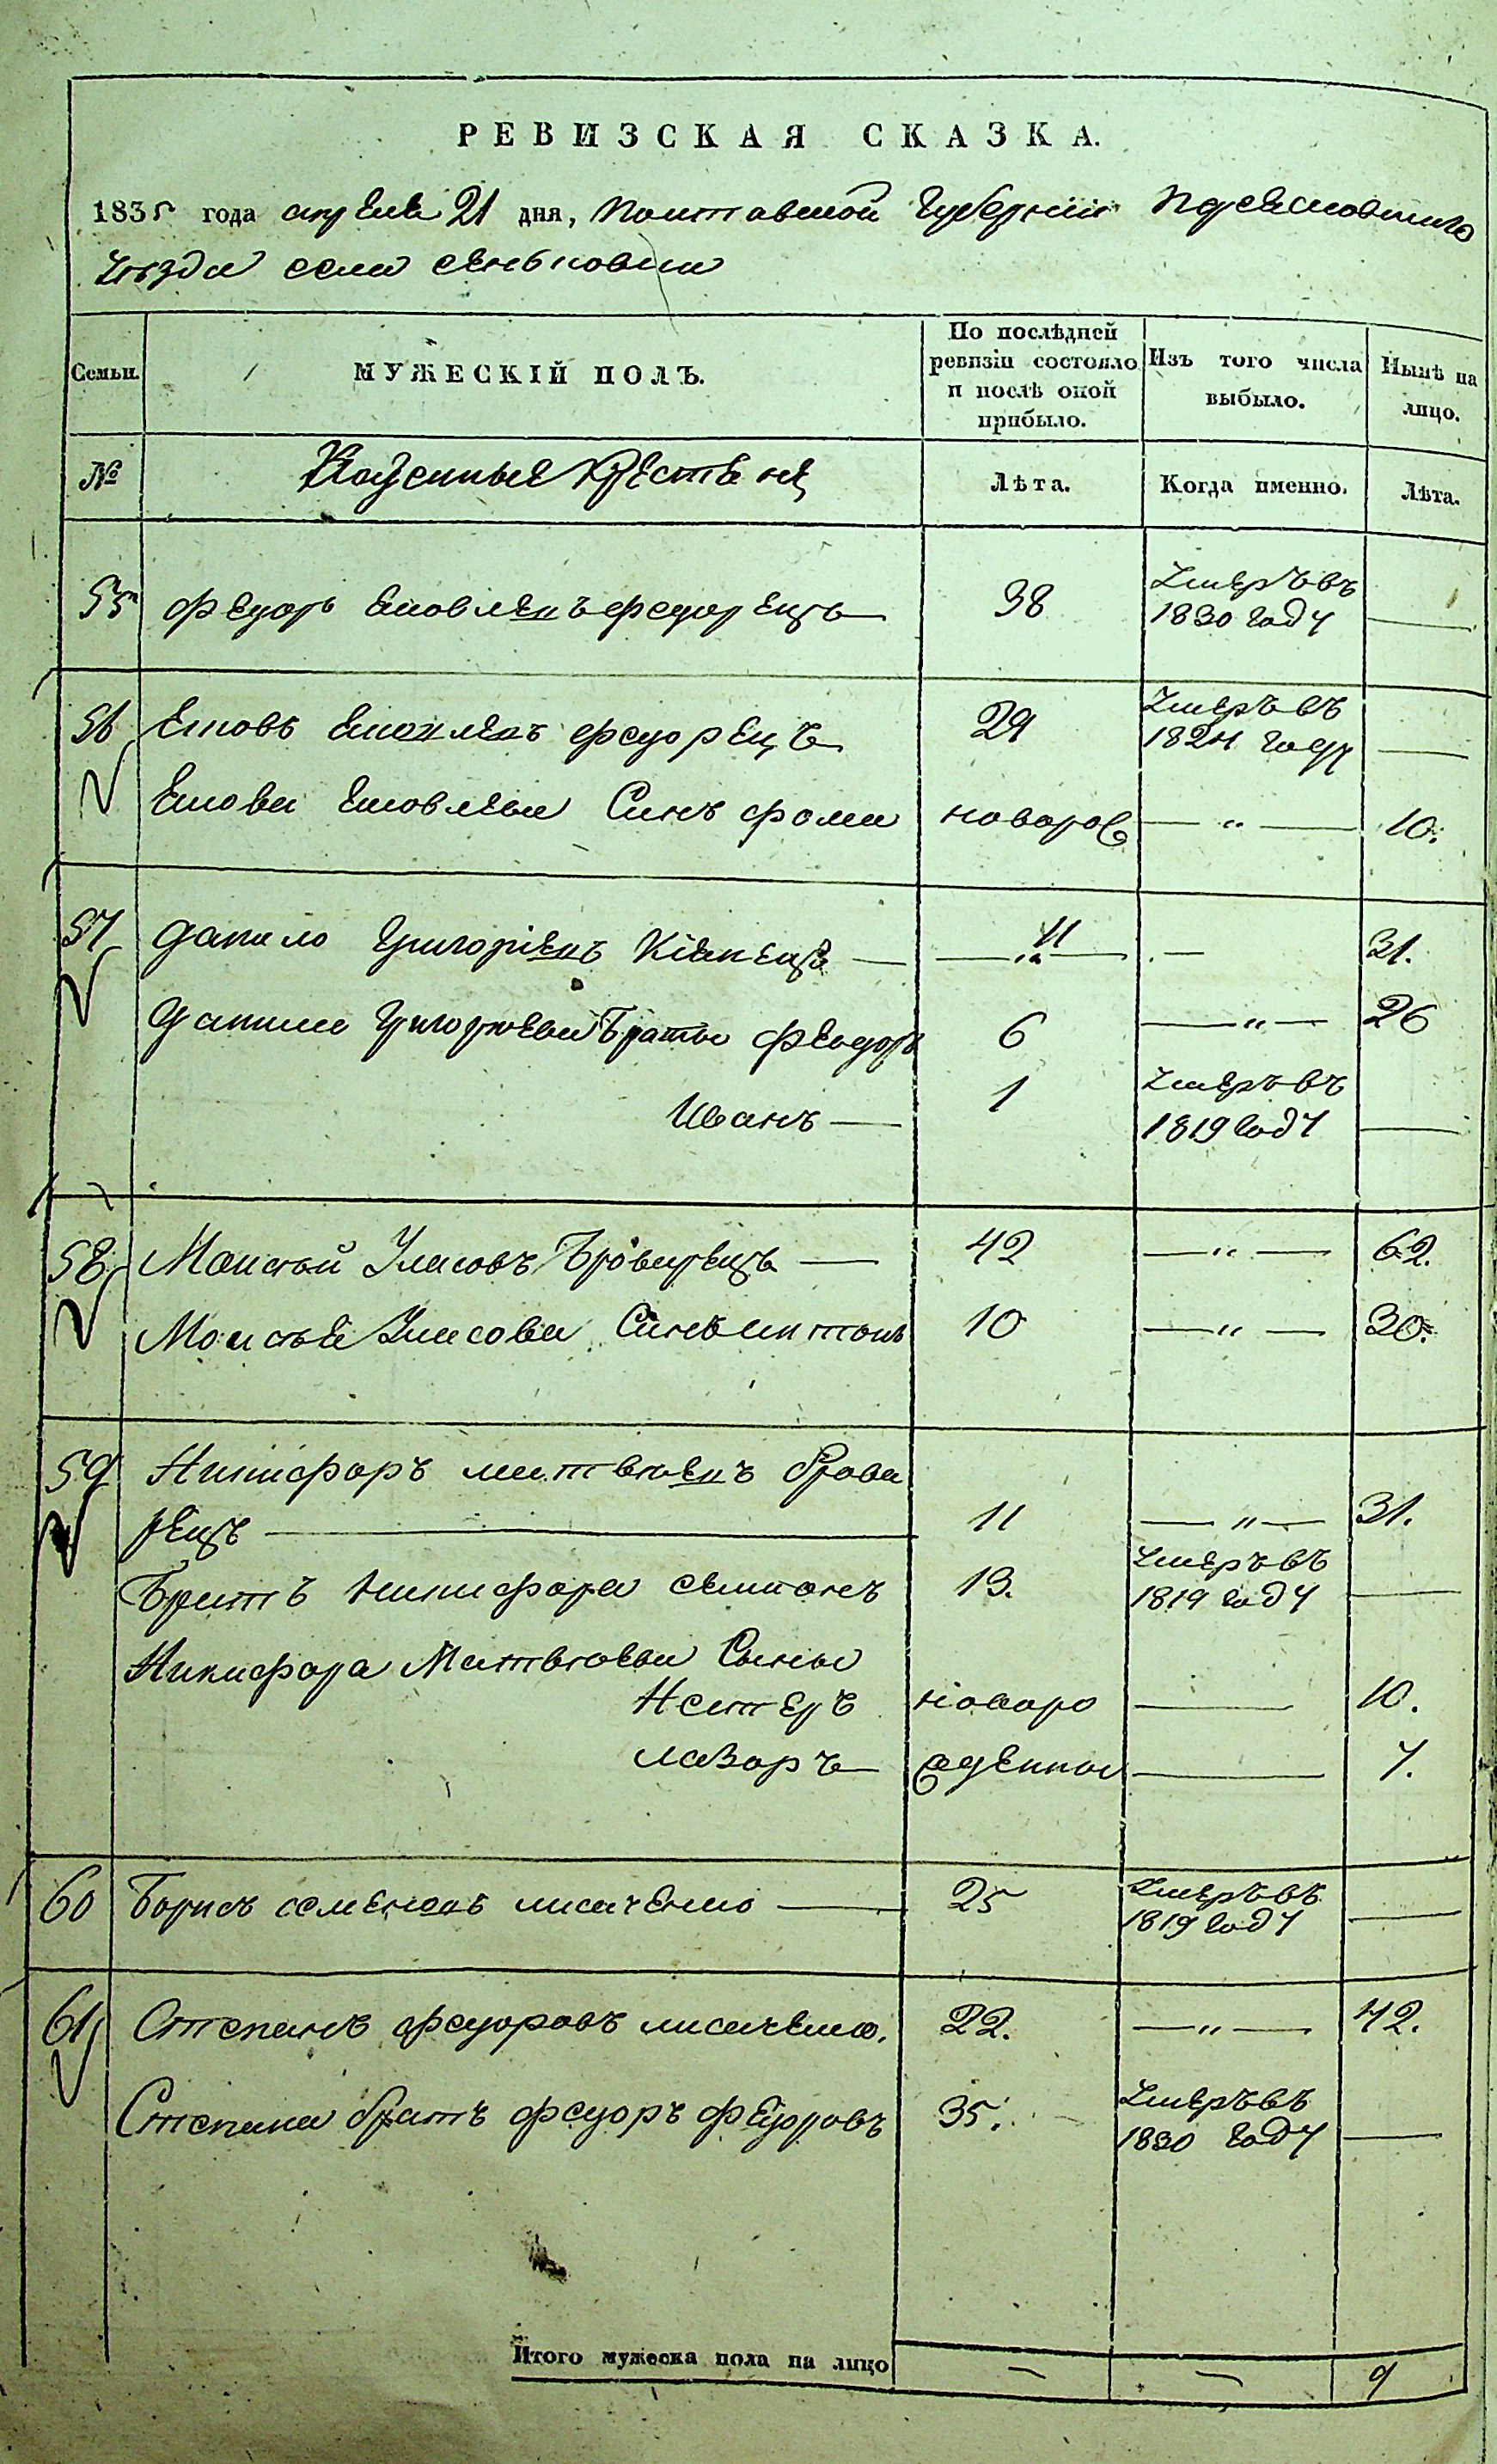 РЕВИЗСКАЯ СКАЗКА.
1835 года апреля 21 дня, Полтавской Губернии Переяславскаго
Уезда села сеньковки
Семьи.
МУЖЕСКІЙ ПОЛЪ.
По послѣдней
ревизіи состояло
и послѣ оной
прибыло.
Изъ того числа
выбыло.
Нынѣ на
лицо.
№
Казенные крестяне
Лѣта.
Когда именно.
Лѣта.
55 федоръ яковлевъ федорецъ 38 Умеръ въ
1830 году
56 Яковъ яковлевъ федорецъ 29 Умеръ въ
1824 году
Якова яковлева Синъ фома новорож — „ — 10.
57 данило Григоріевъ Кіянецъ 11 — 31.
данила Григорѣева Братья феодоръ 6 — „ — 26
Иванъ 1 Умеръ въ
1819 году
58 Моисей Уласовъ Броварецъ 42 — „ — 62.
Моисея Уласова Синъ антонъ 10 — „ — 30.
59 Никифоръ матвѣевъ брова
рецъ 11 — „ — 31.
Братъ никифора семионъ 13. Умеръ въ
1819 году
Никифора Матвѣева Сыны
Нестеръ новоро — 10.
лазоръ жденные — 7.
60 Борисъ семеновъ лисаченко 25 Умеръ въ
1819 году
61 Степанъ федоровъ лисаченко. 22. — „ — 42.
Степана братъ федоръ федоровъ 35. Умеръ въ
1830 году
Итого мужеска пола на лицо — — 9